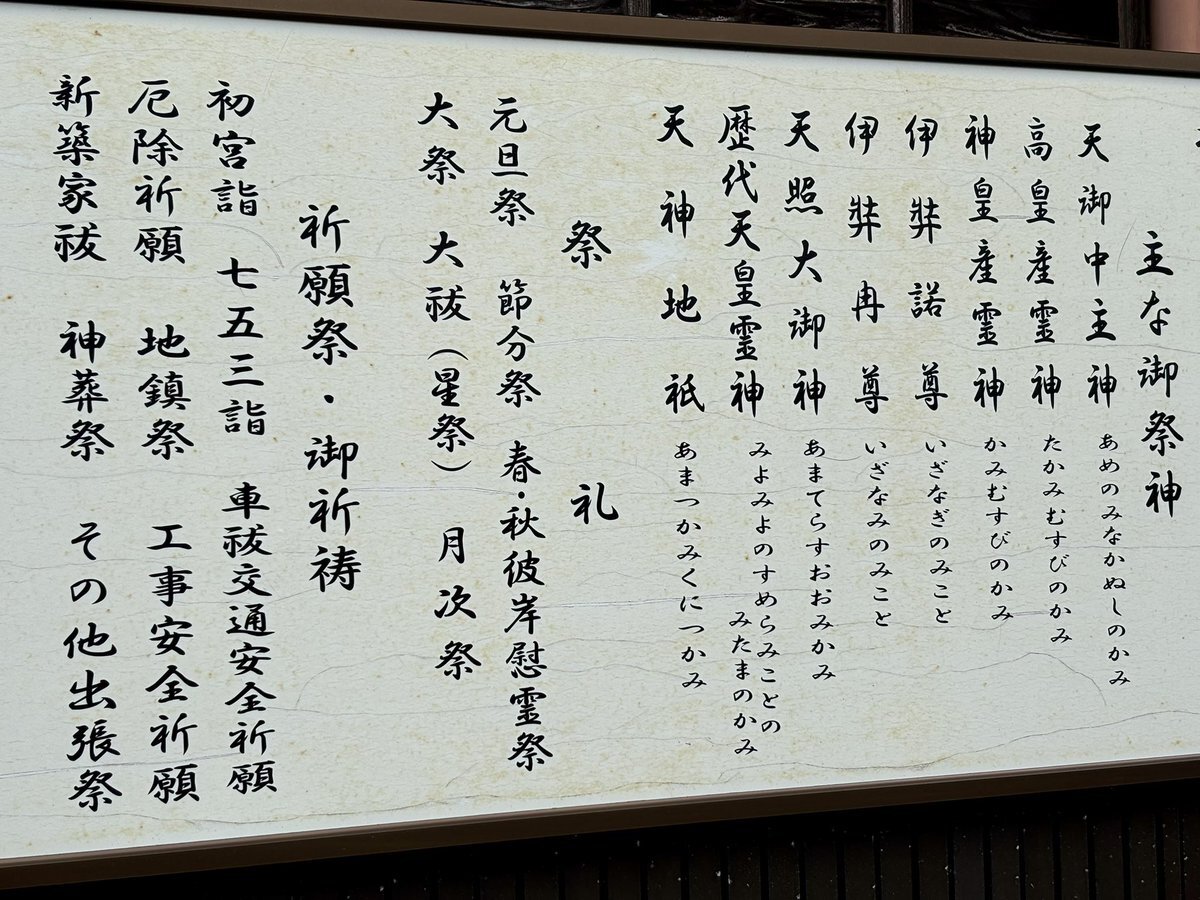 主な御祭神
天御中主神 あめのみなかぬしのかみ
高皇産霊神 たかみむすびのかみ
神皇産霊神 かみむすびのかみ
伊弉諾尊 いざなぎのみこと
伊弉冉尊 いざなみのみこと
天照大御神 あまてらすおおみかみ
歴代天皇霊神 みよみよのすめらみことの
みたまのかみ
天神地祇 あまつかみくにつかみ
祭礼
元旦祭 節分祭 春・秋彼岸慰霊祭
大祭 大祓(星祭) 月次祭
祈願祭・御祈祷
初宮詣 七五三詣 車祓交通安全祈願
厄除祈願 地鎮祭 工事安全祈願
新築家祓 神葬祭 その他出張祭